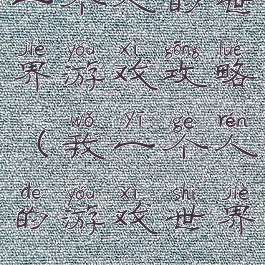 的世
jiè yóu xì gōng lüè
界游戏攻略
wǒ yī gè rén
(我一个人
de yóu xì shì jiè
的游戏世界